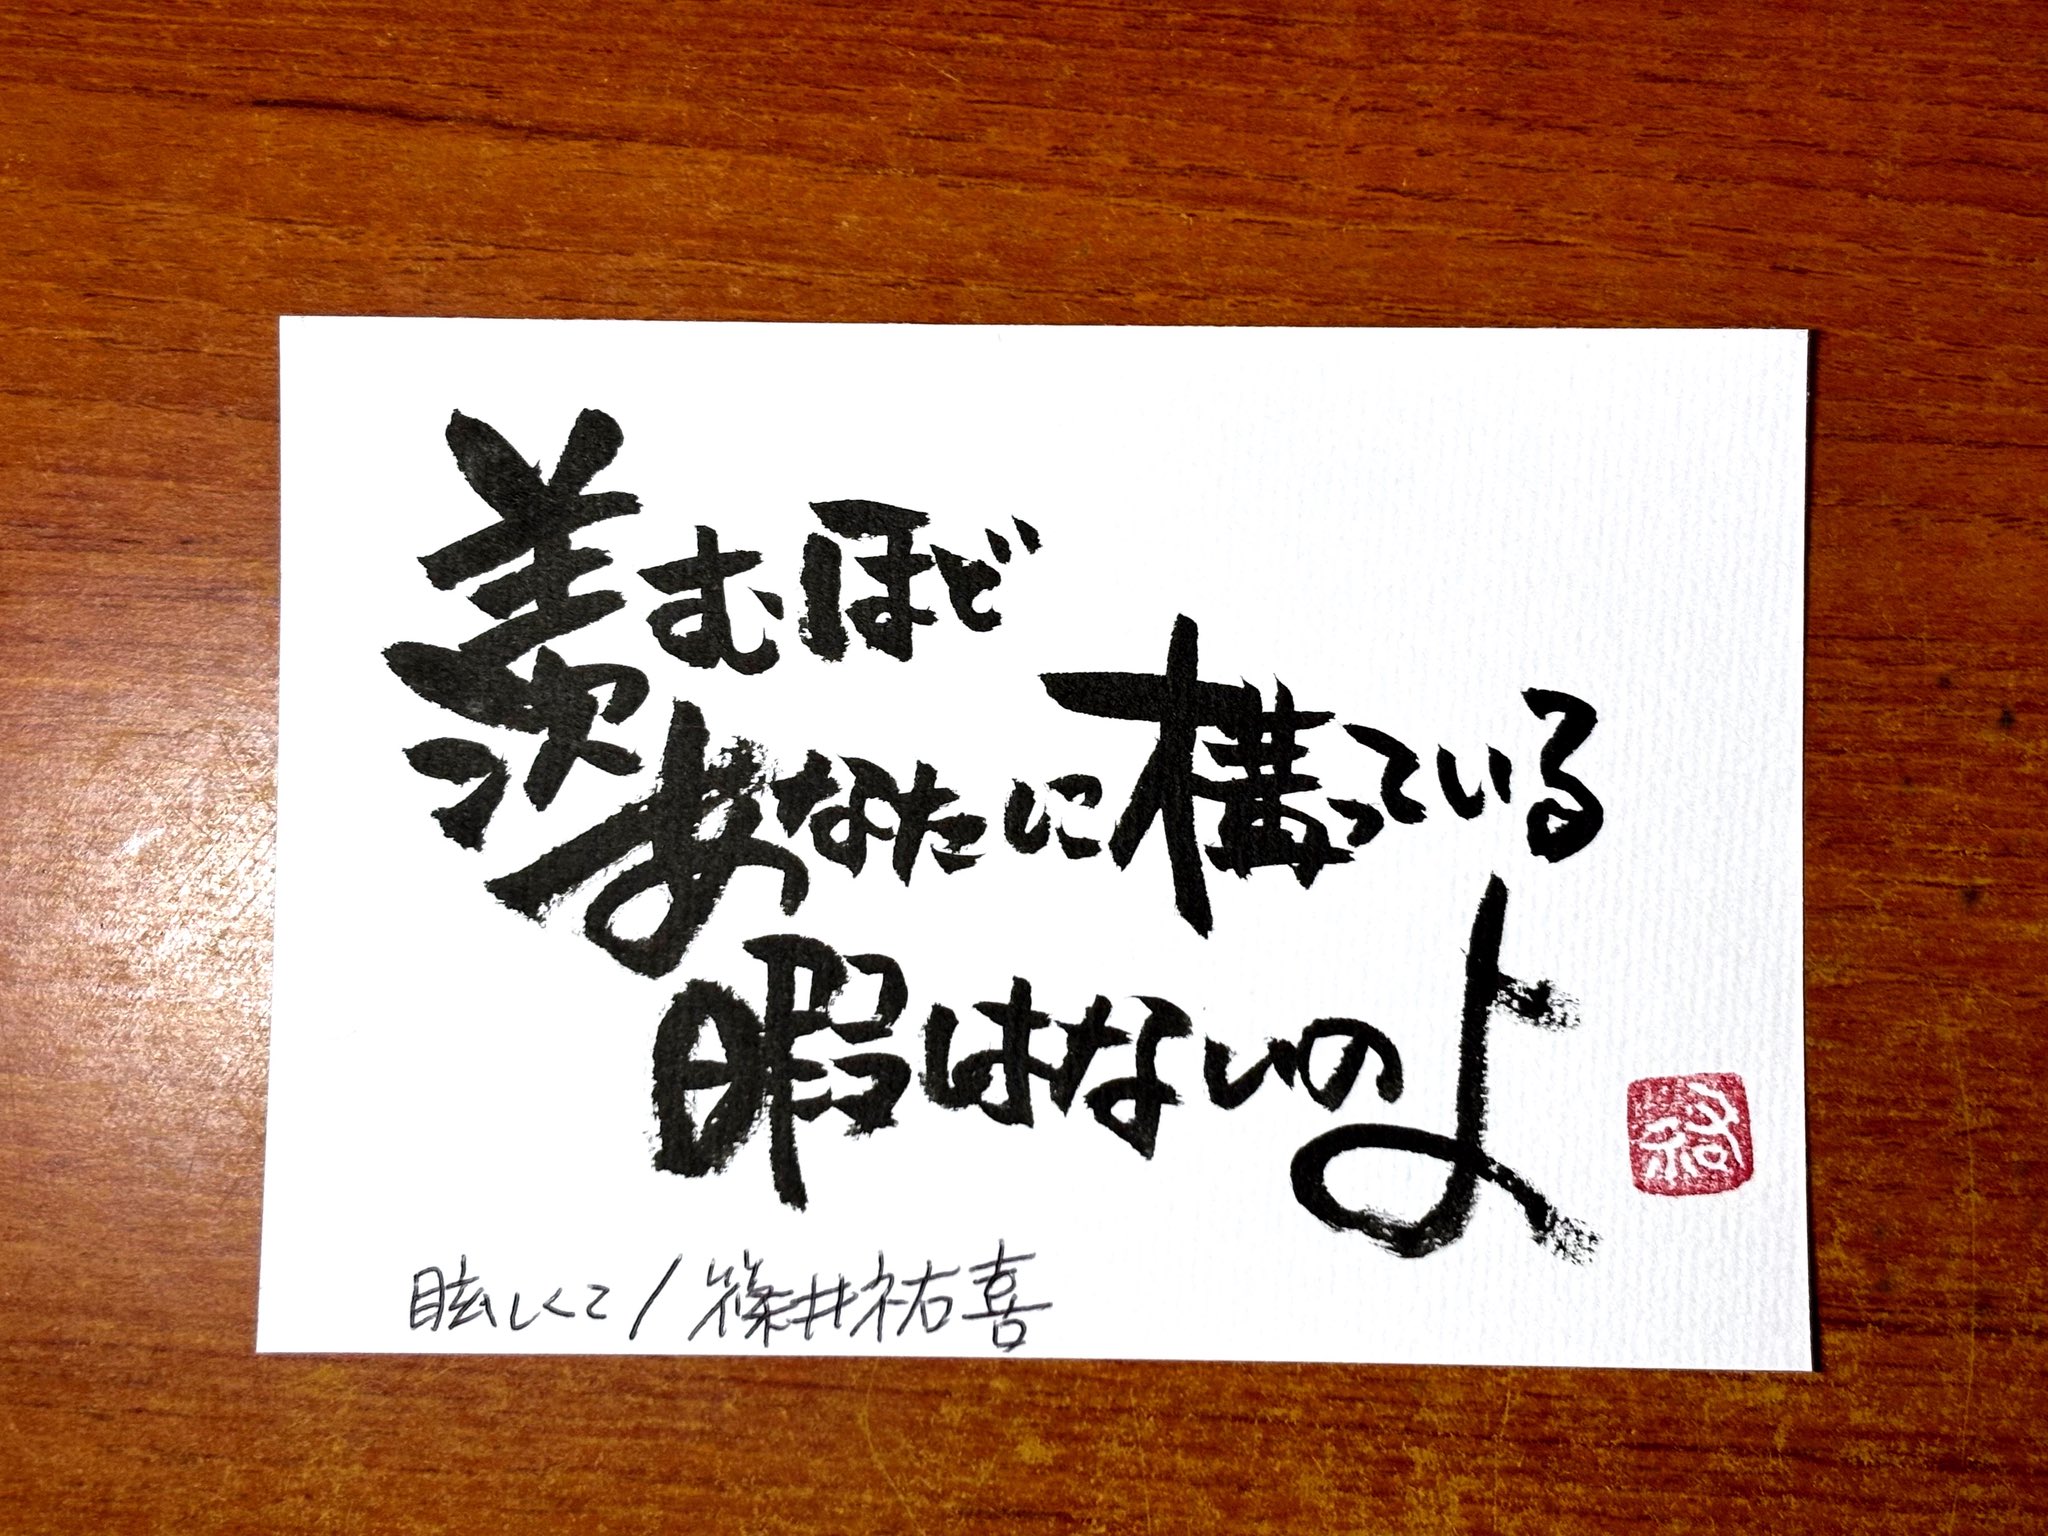 羨むほど
あなたに構っている
暇はないのよ
眩しくて/篠井祐喜